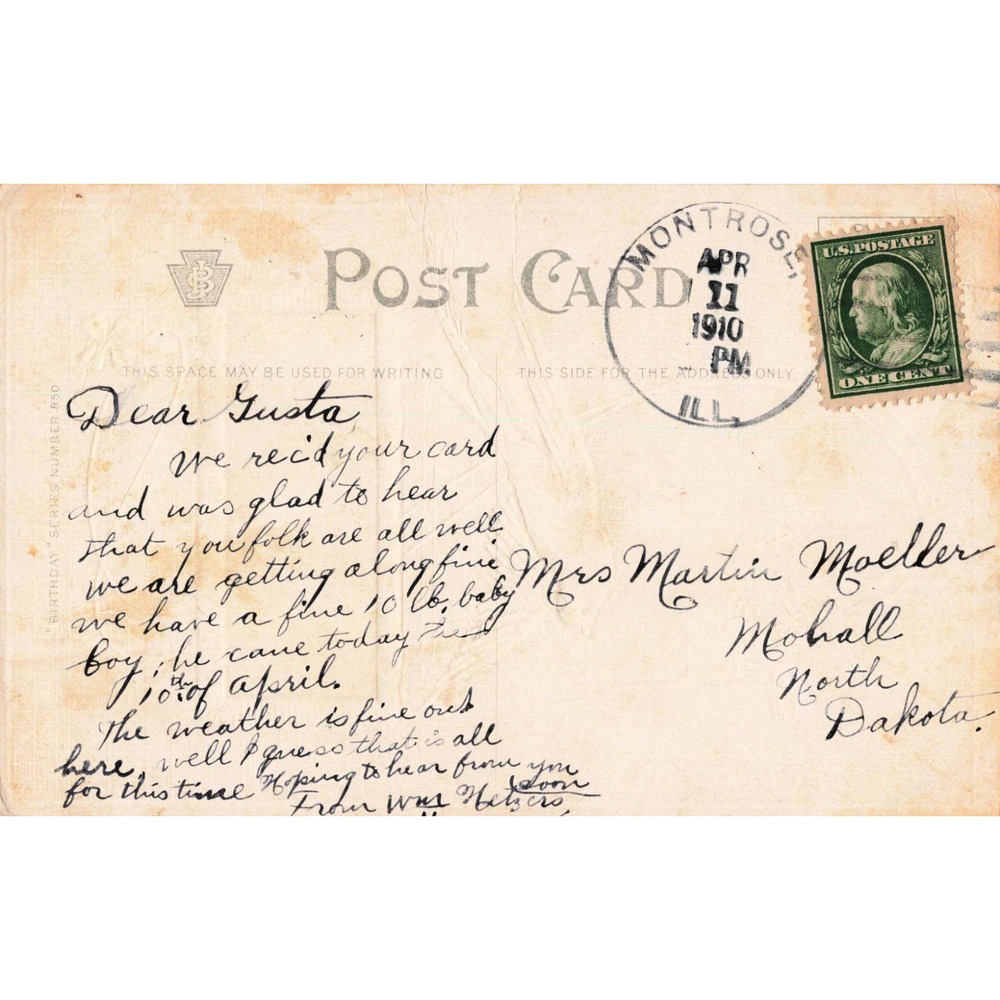 POST CARD
MONTROSE,
APR
11
1910
PM
ILL.
U.S. POSTAGE
ONE CENT
THIS SPACE MAY BE USED FOR WRITING
THIS SIDE FOR THE ADDRESS ONLY
"BIRTHDAY" SERIES NUMBER 850
Dear Gusta
We rec'd your card
and was glad to hear
that you folk are all well
we are getting along fine
we have a fine 10 lb. baby
boy; he came today the
10th of April.
The weather is fine out
here, well I guess that is all
for this time Hoping to hear from you
soon
From Wm
Mrs Martin Moeller
Mohall
North
Dakota.